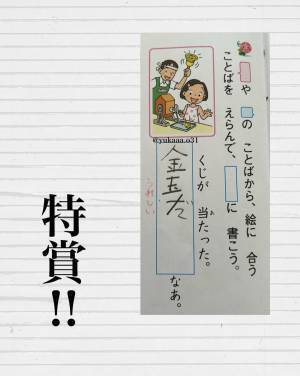 や の ことばから、絵に 合う
ことばを えらんで、 に 書こう。
@yukaaa.o31
くじが 当たった。
あ
金玉だ なあ。
うれしい
特賞!!